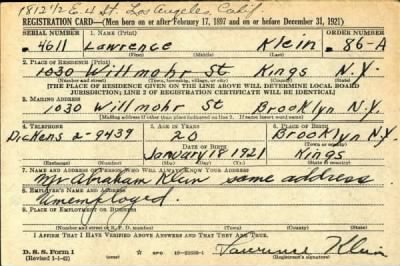 1812 1/2 E. 4 St. Los Angeles, Calif.
REGISTRATION CARD—(Men born on or after February 17, 1897 and on or before December 31, 1921)
SERIAL NUMBER 1. NAME (Print) ORDER NUMBER
4611 Lawrence Klein 86-A
(First) (Middle) (Last)
2. PLACE OF RESIDENCE (Print)
1030 Willmohr St Kings N.Y.
(Number and street) (Town, township, village, or city) (County) (State)
[THE PLACE OF RESIDENCE GIVEN ON THE LINE ABOVE WILL DETERMINE LOCAL BOARD
JURISDICTION; LINE 2 OF REGISTRATION CERTIFICATE WILL BE IDENTICAL]
3. MAILING ADDRESS
1030 Willmohr St Brooklyn N.Y.
[Mailing address if other than place indicated on line 2. If same insert word same]
4. TELEPHONE 5. AGE IN YEARS 6. PLACE OF BIRTH
Dickens 2-9439 20 Brooklyn N.Y.
DATE OF BIRTH (Town or county)
January 18 1921 Kings
(Exchange) (Number) (Mo.) (Day) (Yr.) (State or country)
7. NAME AND ADDRESS OF PERSON WHO WILL ALWAYS KNOW YOUR ADDRESS
Mr. Abraham Klein same address
8. EMPLOYER'S NAME AND ADDRESS
Unemployed.
9. PLACE OF EMPLOYMENT OR BUSINESS
(Number and street or R. F. D. number) (Town) (County) (State)
I AFFIRM THAT I HAVE VERIFIED ABOVE ANSWERS AND THAT THEY ARE TRUE.
D. S. S. Form 1
(Revised 1-1-42) GPO Lawrence Klein